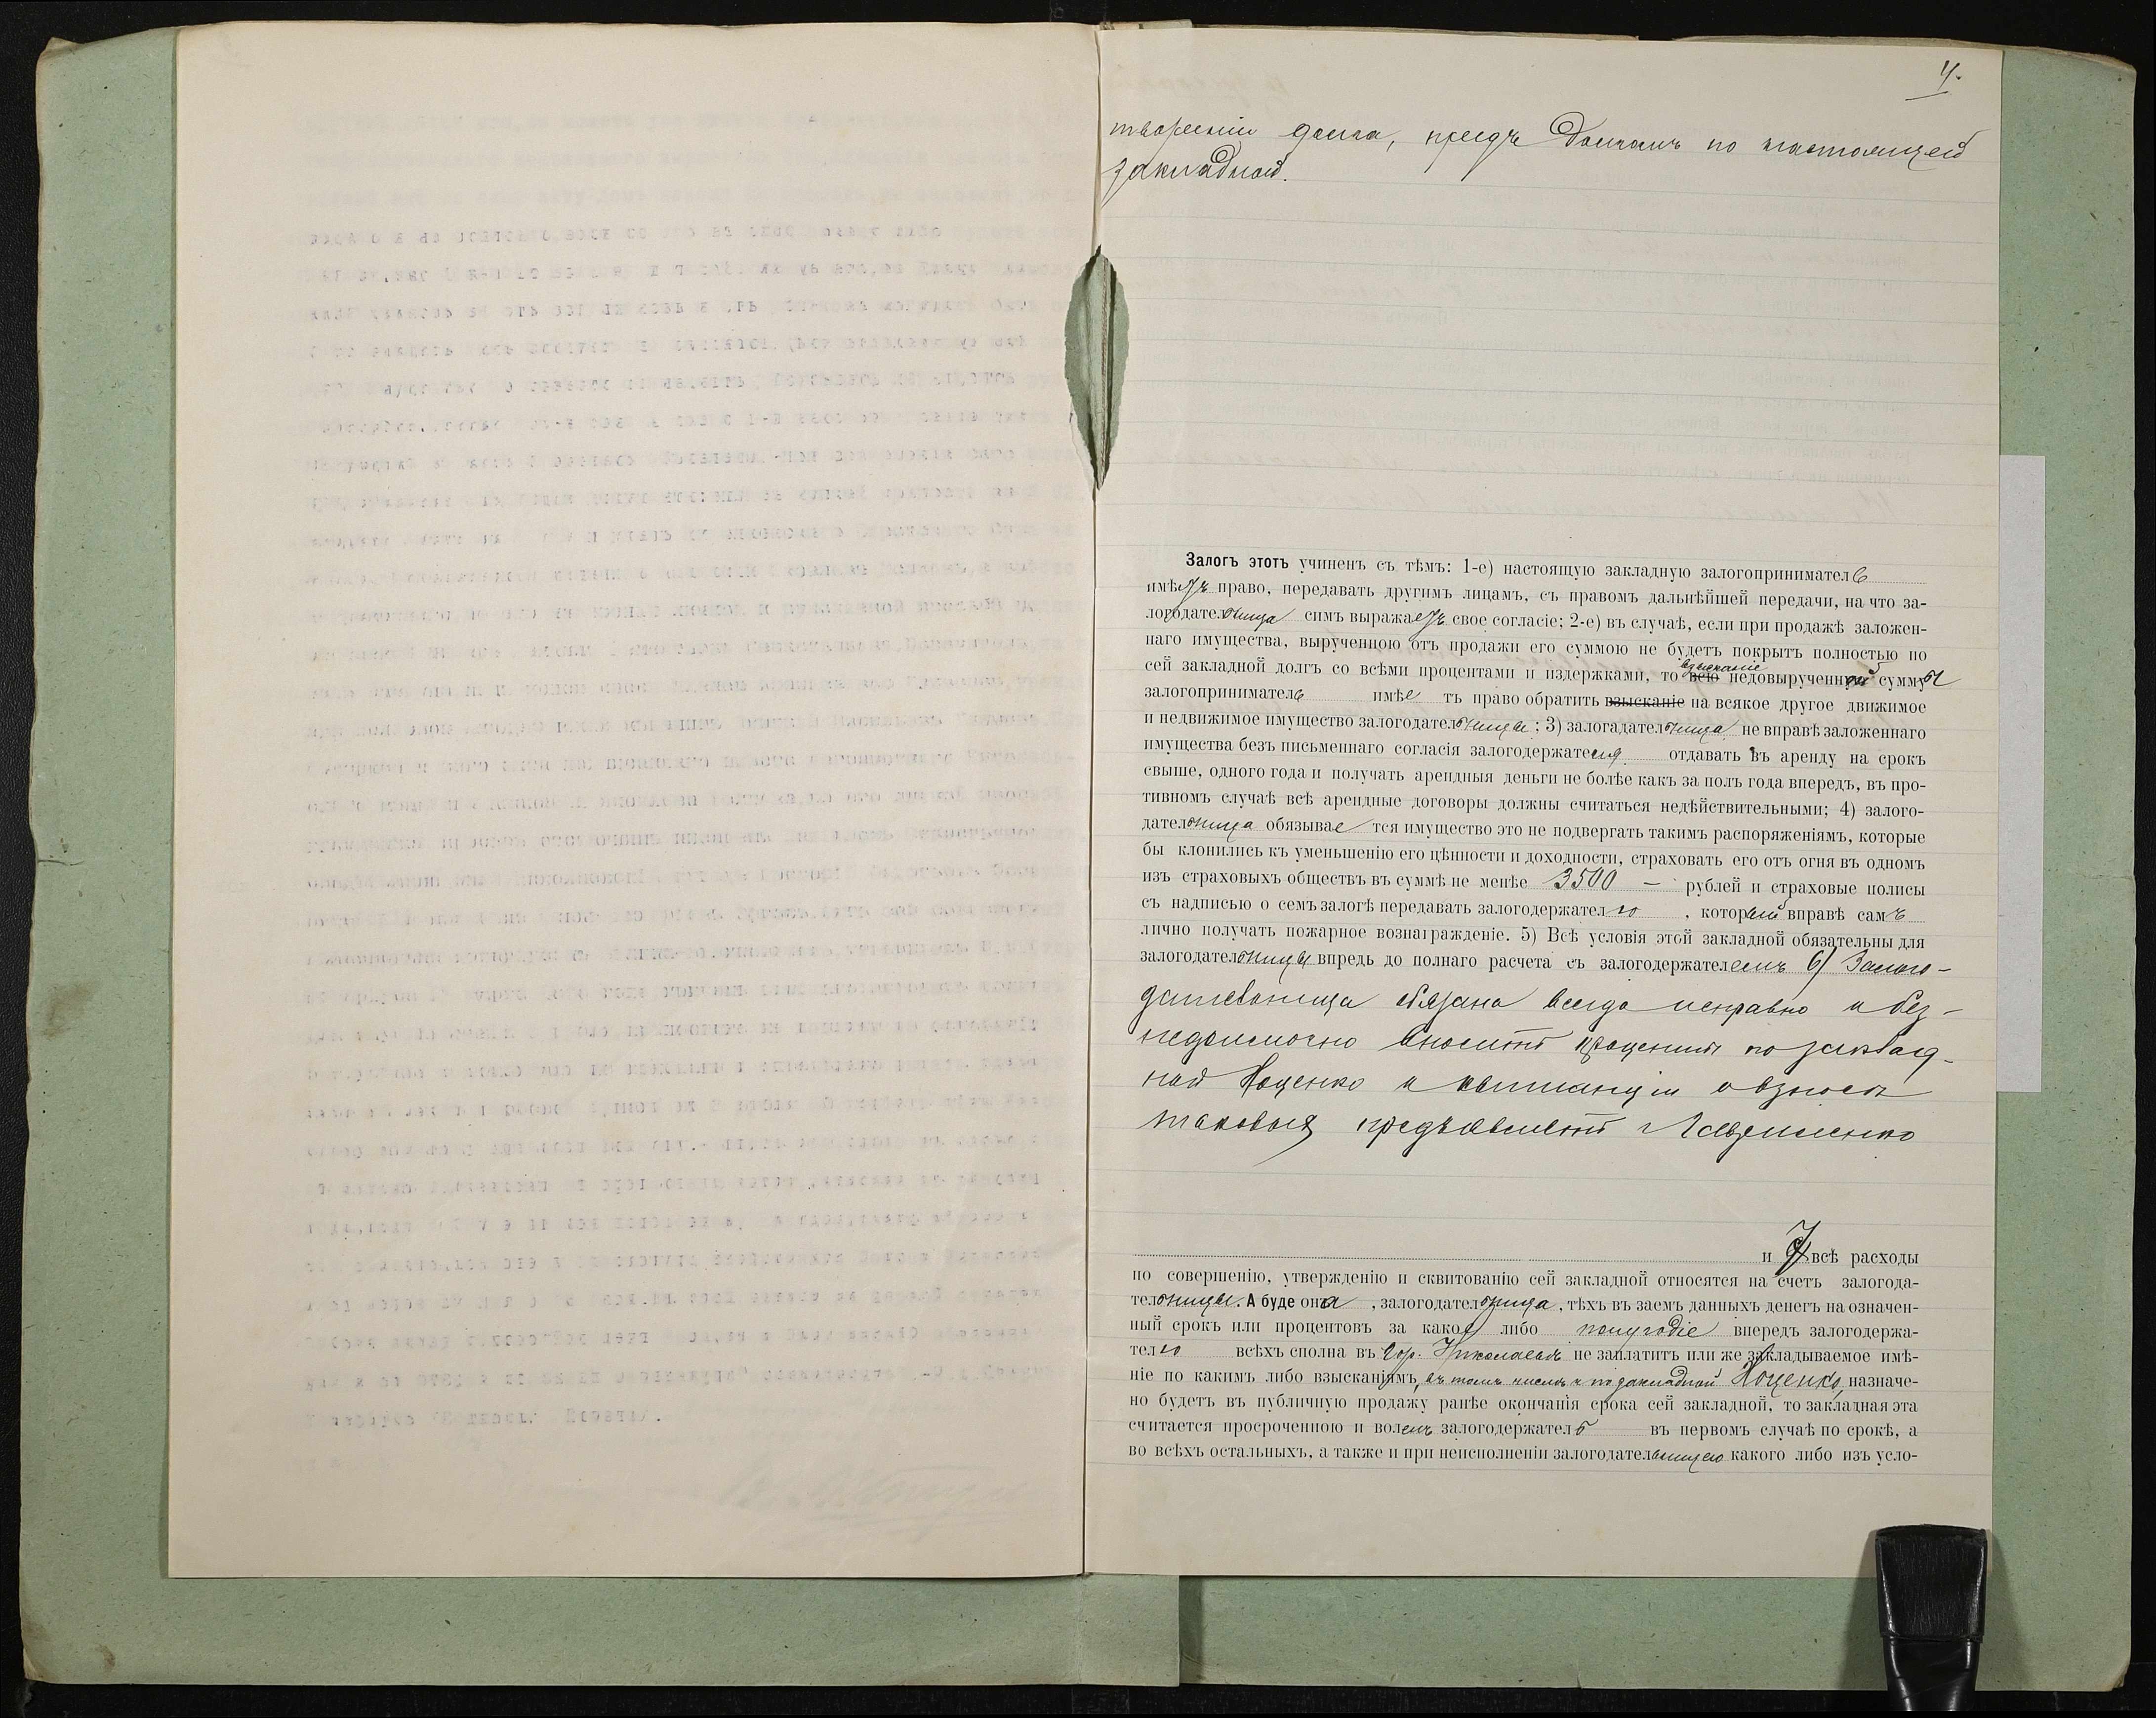 4.
творенiи долга, предъ долгомъ по настоящей
закладной.
Залогъ этотъ учиненъ съ тѣмъ: 1-е) настоящую закладную залогоприниматель
имѣетъ право, передавать другимъ лицамъ, съ правомъ дальнѣйшей передачи, на что за-
логодательница симъ выражаетъ свое согласіе; 2-е) въ случаѣ, если при продажѣ заложен-
наго имущества, вырученною отъ продажи его суммою не будетъ покрытъ полностью по
взысканіе
сей закладной долгъ со всѣми процентами и издержками, то всю недовырученной суммы
залогоприниматель имѣетъ право обратить взысканіе на всякое другое движимое
и недвижимое имущество залогодательницы; 3) залогадательница не вправѣ заложеннаго
имущества безъ письменнаго согласія залогодержателя отдавать въ аренду на срокъ
свыше, одного года и получать арендныя деньги не болѣе какъ за полъ года впередъ, въ про-
тивномъ случаѣ всѣ арендные договоры должны считаться недѣйствительными; 4) залого-
дательница обязывается имущество это не подвергать такимъ распоряженіямъ, которые
бы клонились къ уменьшенію его цѣнности и доходности, страховать его отъ огня въ одномъ
изъ страховыхъ обществъ въ суммѣ не менѣе 3500 — рублей и страховые полисы
съ надписью о семъ залогѣ передавать залогодержателю, который вправѣ самъ
лично получать пожарное вознагражденіе. 5) Всѣ условія этой закладной обязательны для
залогодательницы впредь до полнаго расчета съ залогодержателемъ 6) Залого-
дательница обязана всегда исправно и без-
недоимочно вносить проценты по заклад-
ной Коценко и квитанціи о взносѣ
таковыхъ предъявлять
и 7) всѣ расходы
по совершенію, утвержденію и сквитованію сей закладной относятся на счетъ залогода-
тельницы. А буде она, залогодательница, тѣхъ въ заемъ данныхъ денегъ на означен-
ный срокъ или процентовъ за какое либо полугодіе впередъ залогодержа-
телю всѣхъ сполна въ гор. Николаевѣ не заплатитъ или же закладываемое имѣ-
ніе по какимъ либо взысканіямъ, въ томъ числѣ и по закладной Коценко, назначе-
но будетъ въ публичную продажу ранѣе окончанія срока сей закладной, то закладная эта
считается просроченною и воленъ залогодержатель въ первомъ случаѣ по срокѣ, а
во всѣхъ остальныхъ, а также и при неисполненіи залогодательницею какого либо изъ усло-